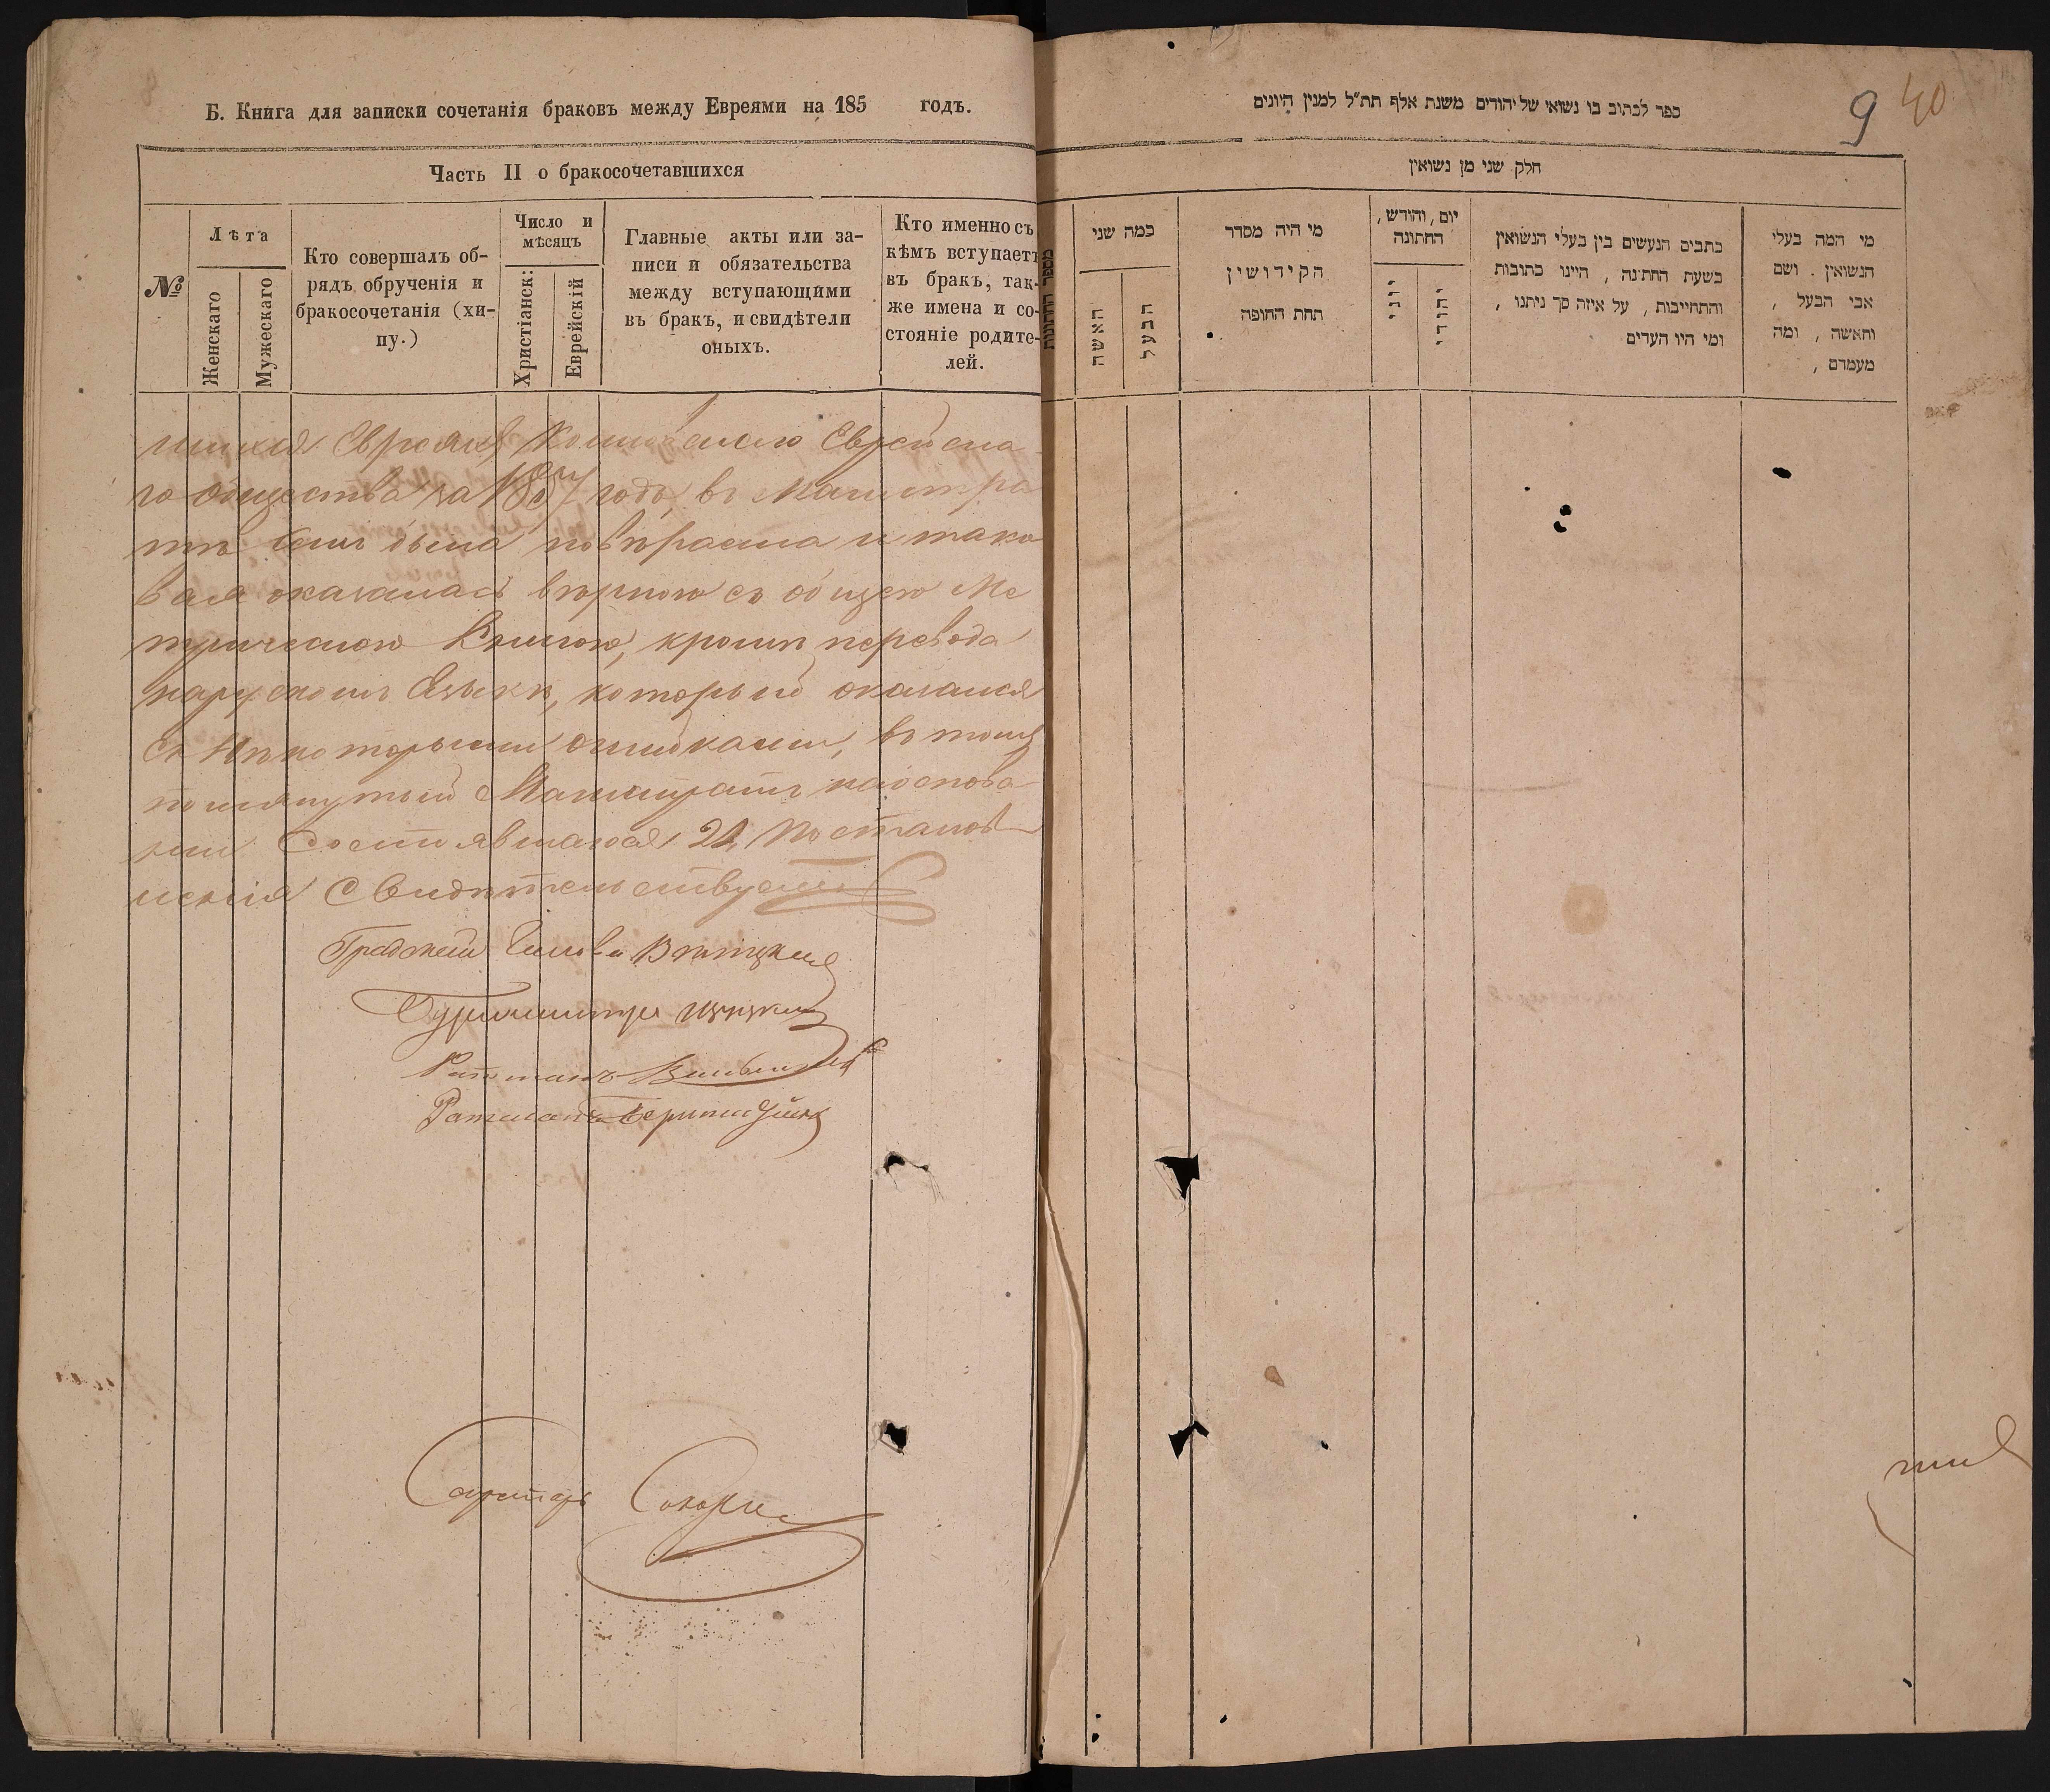 Б. Книга для записки сочетанія браковъ между Евреями на 185 годъ.
Часть II о бракосочетавшихся
№
Лѣта
Женскаго
Мужескаго
Кто совершалъ об-
рядъ обрученія и
бракосочетанія (хи-
пу.)
Число и
мѣсяцъ
Христіанск:
Еврейскій
Главные акты или за-
писи и обязательства
между вступающими
въ бракъ, и свидѣтели
оныхъ.
Кто именно съ
кѣмъ вступаетъ
въ бракъ, так-
же имена и со-
стояніе родите-
лей.
Евреяхъ Еврейска
го общества за 1857 годъ, въ Магистра
тѣ была повѣряема и тако
вая оказалась вѣрною съ общею Ме
трическою Книгою, кромѣ перевода
на рускомъ Языкѣ, который оказался
съ Нѣкоторыми ошибками, въ томъ
помянутый Магистратъ на основа
ніи Состоявшагося 21 Постанов
ленія Свидѣтельствуетъ
Градскій Голова
Бургомистръ
Ратманъ
Ратманъ
Секретарь
ספר לכתוב בו נשואי של יהודים משנת אלף תת"ל למנין היונים
9 40
חלק שני מן נשואין
מספר החתונות
כמה שני
האשה
הבעל
מי היה מסדר
הקידושין
תחת החופה
יום, והודש,
החתונה
יוני
יהודי
כתבים הנעשים בין בעלי הנשואין
בשעת החתונה, היינו כתובות
והתחייבות, על איזה סך ניתנו,
ומי היו העדים
מי המה בעלי
הנשואין. ושם
אבי הבעל,
והאשה, ומה
מעמדם,